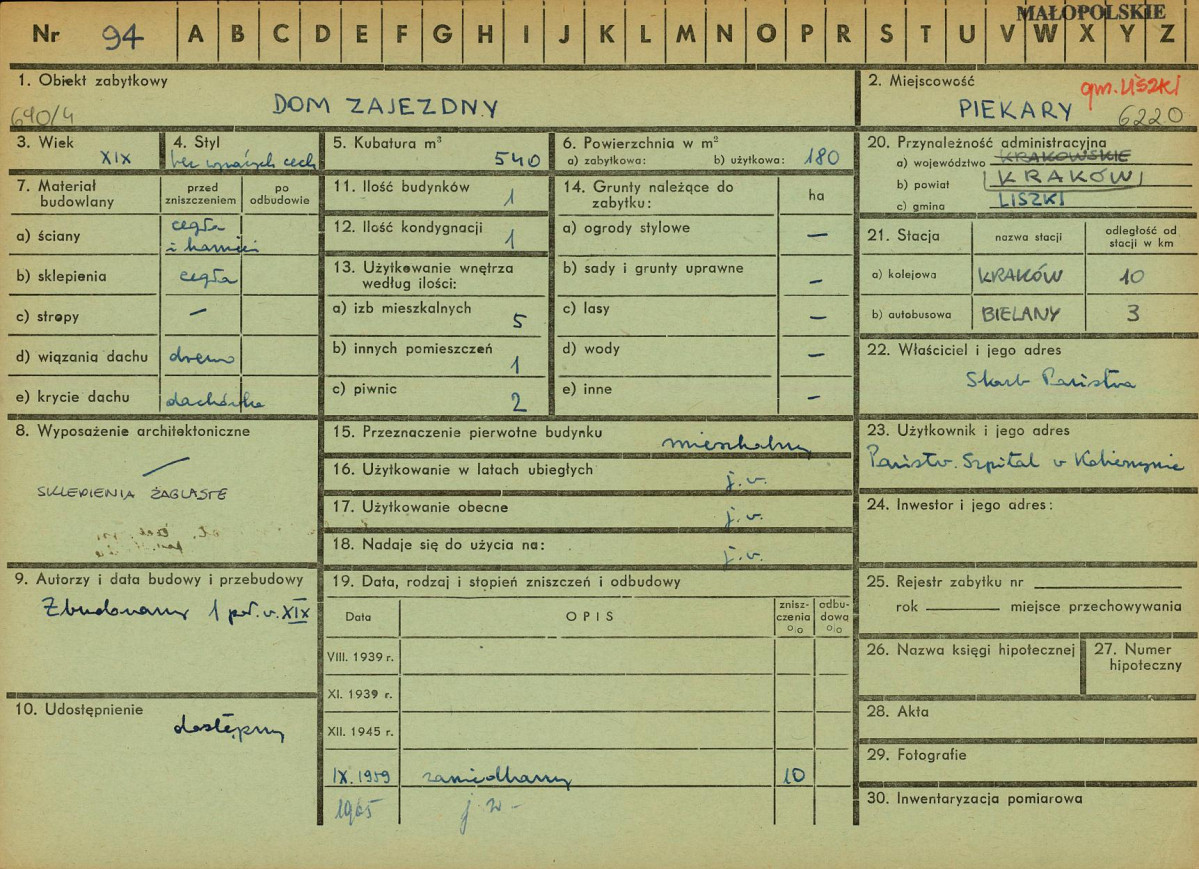 MAŁOPOLSKIE
Nr 94 A B C D E F G H I J K L M N O P R S T U V W X Y Z
1. Obiekt zabytkowy
DOM ZAJEZDNY
690/4
2. Miejscowość
gm. LISZKI
PIEKARY
6220
3. Wiek
XIX
4. Styl
bez wyraźnych cech
5. Kubatura m³
540
6. Powierzchnia w m²
a) zabytkowa: b) użytkowa: 180
7. Materiał budowlany
przed zniszczeniem
po odbudowie
a) ściany cegła i kamień
b) sklepienia cegła
c) stropy –
d) wiązania dachu drewno
e) krycie dachu dachówka
8. Wyposażenie architektoniczne
SKLEPIENIA ŻAGLASTE
9. Autorzy i data budowy i przebudowy
Zbudowany 1 poł. w. XIX
10. Udostępnienie
dostępny
11. Ilość budynków 1
12. Ilość kondygnacji 1
13. Użytkowanie wnętrza
według ilości:
a) izb mieszkalnych 5
b) innych pomieszczeń 1
c) piwnic 2
14. Grunty należące do
zabytku:
ha
a) ogrody stylowe –
b) sady i grunty uprawne –
c) lasy –
d) wody –
e) inne –
15. Przeznaczenie pierwotne budynku mieszkalny
16. Użytkowanie w latach ubiegłych j.w.
17. Użytkowanie obecne j.w.
18. Nadaje się do użycia na: j.w.
19. Data, rodzaj i stopień zniszczeń i odbudowy
Data
OPIS
znisz-
czenia
%
odbu-
dowa
%
VIII. 1939 r.
XI. 1939 r.
XII. 1945 r.
IX. 1959 zaniedbany 10
1965 j.w-
20. Przynależność administracyjna
a) województwo KRAKOWSKIE
b) powiat KRAKÓW
c) gmina LISZKI
21. Stacja
nazwa stacji
odległość od
stacji w km
a) kolejowa KRAKÓW 10
b) autobusowa BIELANY 3
22. Właściciel i jego adres
Skarb Państwa
23. Użytkownik i jego adres
Państw. Szpital w Kobierzynie
24. Inwestor i jego adres:
25. Rejestr zabytku nr
rok miejsce przechowywania
26. Nazwa księgi hipotecznej
27. Numer
hipoteczny
28. Akta
29. Fotografie
30. Inwentaryzacja pomiarowa